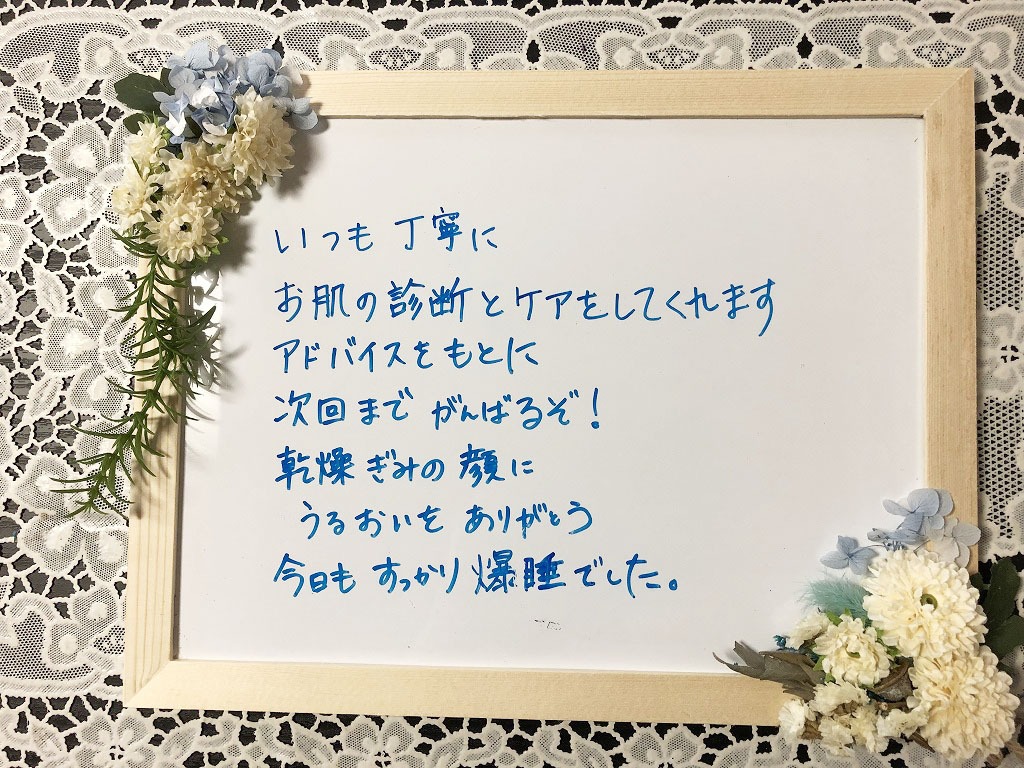 いつも 丁寧に
お肌の診断とケアをしてくれます
アドバイスをもとに
次回まで がんばるぞ!
乾燥ぎみの顔に
うるおいを ありがとう
今日も すっかり爆睡でした。